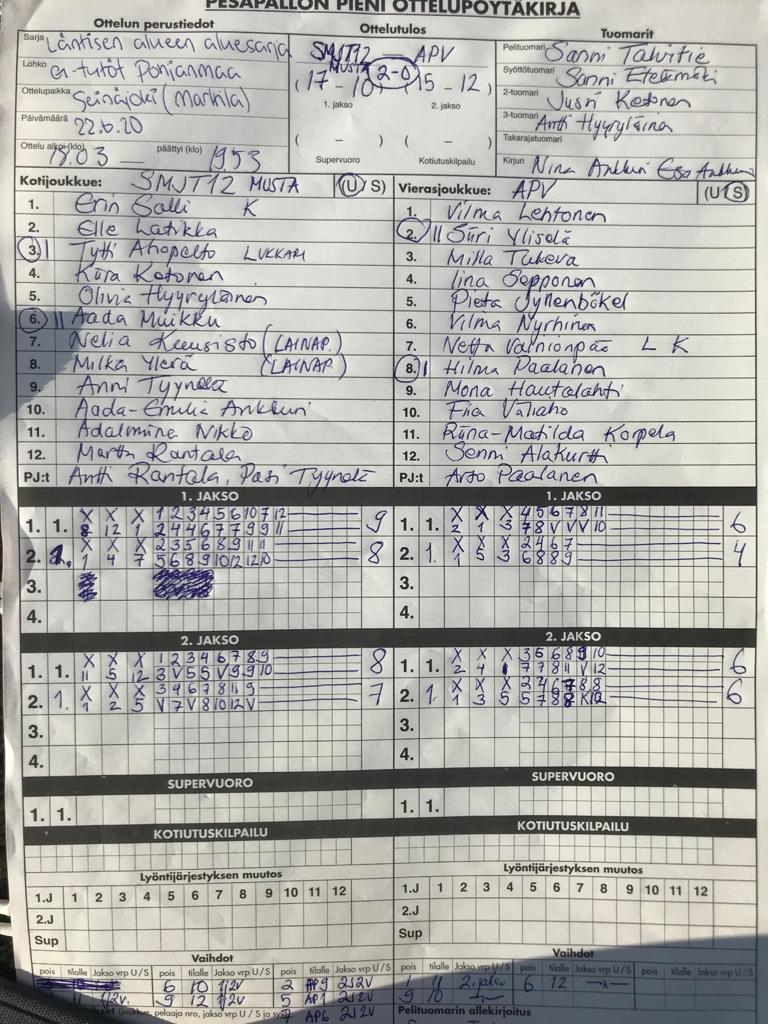 PESÄPALLON PIENI OTTELUPÖYTÄKIRJA
Ottelun perustiedot
Sarja Läntisen alueen aluesarja
Lohko E-tytöt Pohjanmaa
Ottelupaikka Seinäjoki (Marttila)
Päivämäärä 22.6.20
Ottelu alkoi (klo) 18.03 — päättyi (klo) 19.53
Ottelutulos
SMJT12 — APV
MUSTA
(17 - 10, 2-0 15 - 12)
1. jakso 2. jakso
( – ) ( – )
Supervuoro Kotiutuskilpailu
Tuomarit
Pelituomari Sanni Talvitie
Syöttötuomari Sanni Etelämäki
2-tuomari Jussi Ketonen
3-tuomari Antti Hyyryläinen
Takarajatuomari
Kirjuri Nina Ankkuri Esa Ankkuri
Kotijoukkue: SMJT12 MUSTA (U/S)
1. Erin Salli K
2. Elle Latikka
3. Tytti Ahopelto LUKKARI
4. Kiira Ketonen
5. Olivia Hyyryläinen
6. Aada Muikku
7. Nelia Kuusisto (LAINAP.)
8. Milka Ylerä (LAINAP.)
9. Anni Tyynelä
10. Aada-Emilia Ankkuri
11. Adalmiina Nikko
12. Martta Rantala
PJ:t Antti Rantala, Pasi Tyynelä
Vierasjoukkue: APV (U/S)
1. Vilma Lehtonen
2. Siiri Yliselä
3. Milla Tukeva
4. Iina Sepponen
5. Pieta Jyllenbökel
6. Vilma Nyrhinen
7. Netta Vainionpää L K
8. Hilma Paalanen
9. Mona Hautalahti
10. Fiia Väliaho
11. Riina-Matilda Korpela
12. Senni Alakurtti
PJ:t Arto Paalanen
1. JAKSO
1. 1. X X X 1 2 3 4 5 6 10 7 12 9
8 12 1 2 4 4 6 7 7 9 9 11
2. 1. X X X 2 3 5 6 8 9 11 11 8
1 4 7 5 6 8 9 10 12 12 10
3.
4.
1. JAKSO
1. 1. X X X 4 5 6 7 8 11 6
2 1 3 7 8 V V V 10
2. 1. X X X 2 4 6 7 4
1 5 3 6 8 8 9
3.
4.
2. JAKSO
1. 1. X X X 1 2 3 4 6 7 8 9 8
11 5 12 3 V 5 5 V 9 9 10
2. 1. X X X 3 4 6 7 8 11 9 7
1 2 5 V 7 V 8 10 12 V
3.
4.
2. JAKSO
1. 1. X X X 3 5 6 8 9 10 6
2 4 1 7 7 8 11 V 12
2. 1. X X X 2 4 6 7 8 8 6
1 3 5 5 7 8 8 K 12
3.
4.
SUPERVUORO
1. 1.
SUPERVUORO
1. 1.
KOTIUTUSKILPAILU
KOTIUTUSKILPAILU
Lyöntijärjestyksen muutos
1.J 1 2 3 4 5 6 7 8 9 10 11 12
2.J
Sup
Lyöntijärjestyksen muutos
1.J 1 2 3 4 5 6 7 8 9 10 11 12
2.J
Sup
Vaihdot
pois tilalle Jakso vrp U/S pois tilalle Jakso vrp U/S pois tilalle Jakso vrp U/S
6 10 1J2V 2 AP9 2J2V
11 1J2V. 9 12 1J2V 5 AP1 2J2V
7 AP6 2J2V
(joukkue, pelaaja nro, jakso vrp U/S ja syy)
Vaihdot
pois tilalle Jakso vrp U/S pois tilalle Jakso vrp U/S pois tilalle Jakso vrp U/S
1 11 2. jakso 6 12 —"—
9 10 —"—
Pelituomarin allekirjoitus